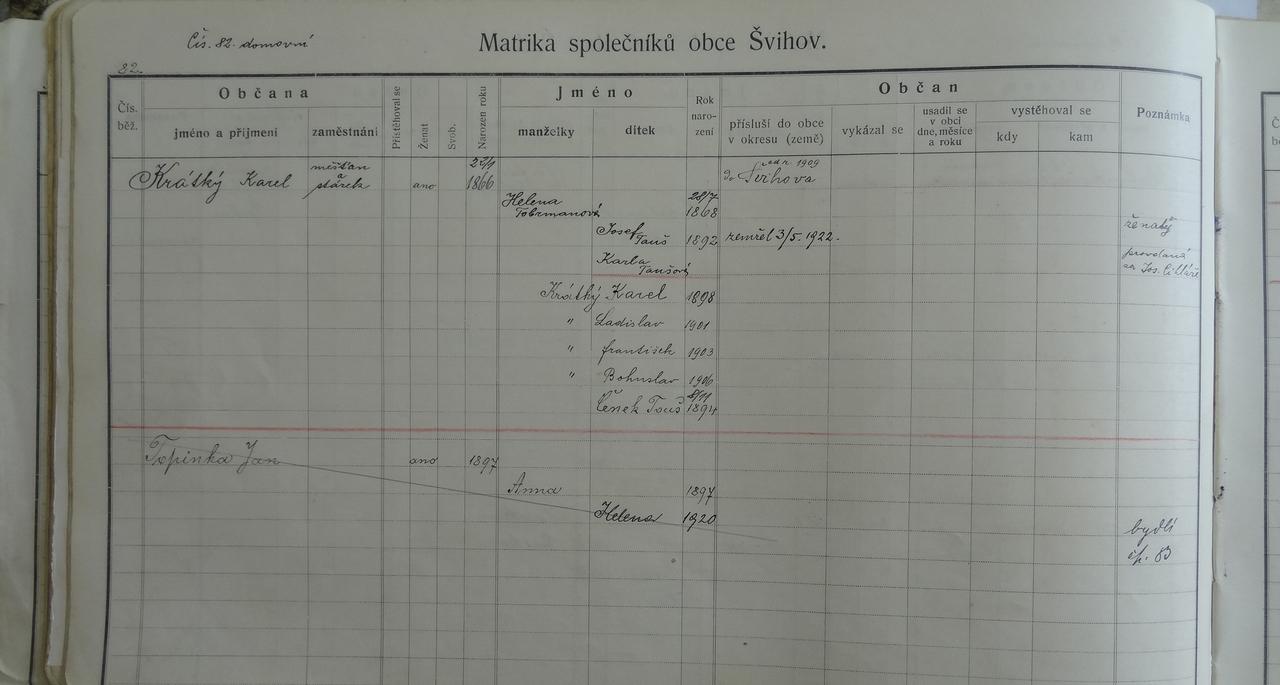 Čís. 82. domovní
Matrika společníků obce Švihov.
82.
Čís. běž.
Občana
jméno a přijmení
zaměstnání
Přistěhoval se
Ženat
Svob.
Narozen roku
Jméno
manželky
dítek
Rok naro- zení
Občan
přísluší do obce v okresu (země)
vykázal se
usadil se v obci dne, měsíce a roku
vystěhoval se
kdy
kam
Poznámka
Krátký Karel
měšťan a stárek
ano
1866
do Švihova
od r. 1909
Helena
28/7 1868
Josef Tauš 1892 zemřel 3/5. 1922. ženatý
Karla Taušová provdaná za Jos.
Krátký Karel 1898
" Ladislav 1901
" František 1903
" Bohuslav 1906
Čeněk Tauš 8/11 1894
Topinka Jan ano 1897
Anna 1897
Helena 1920
bydlí
čp. 83